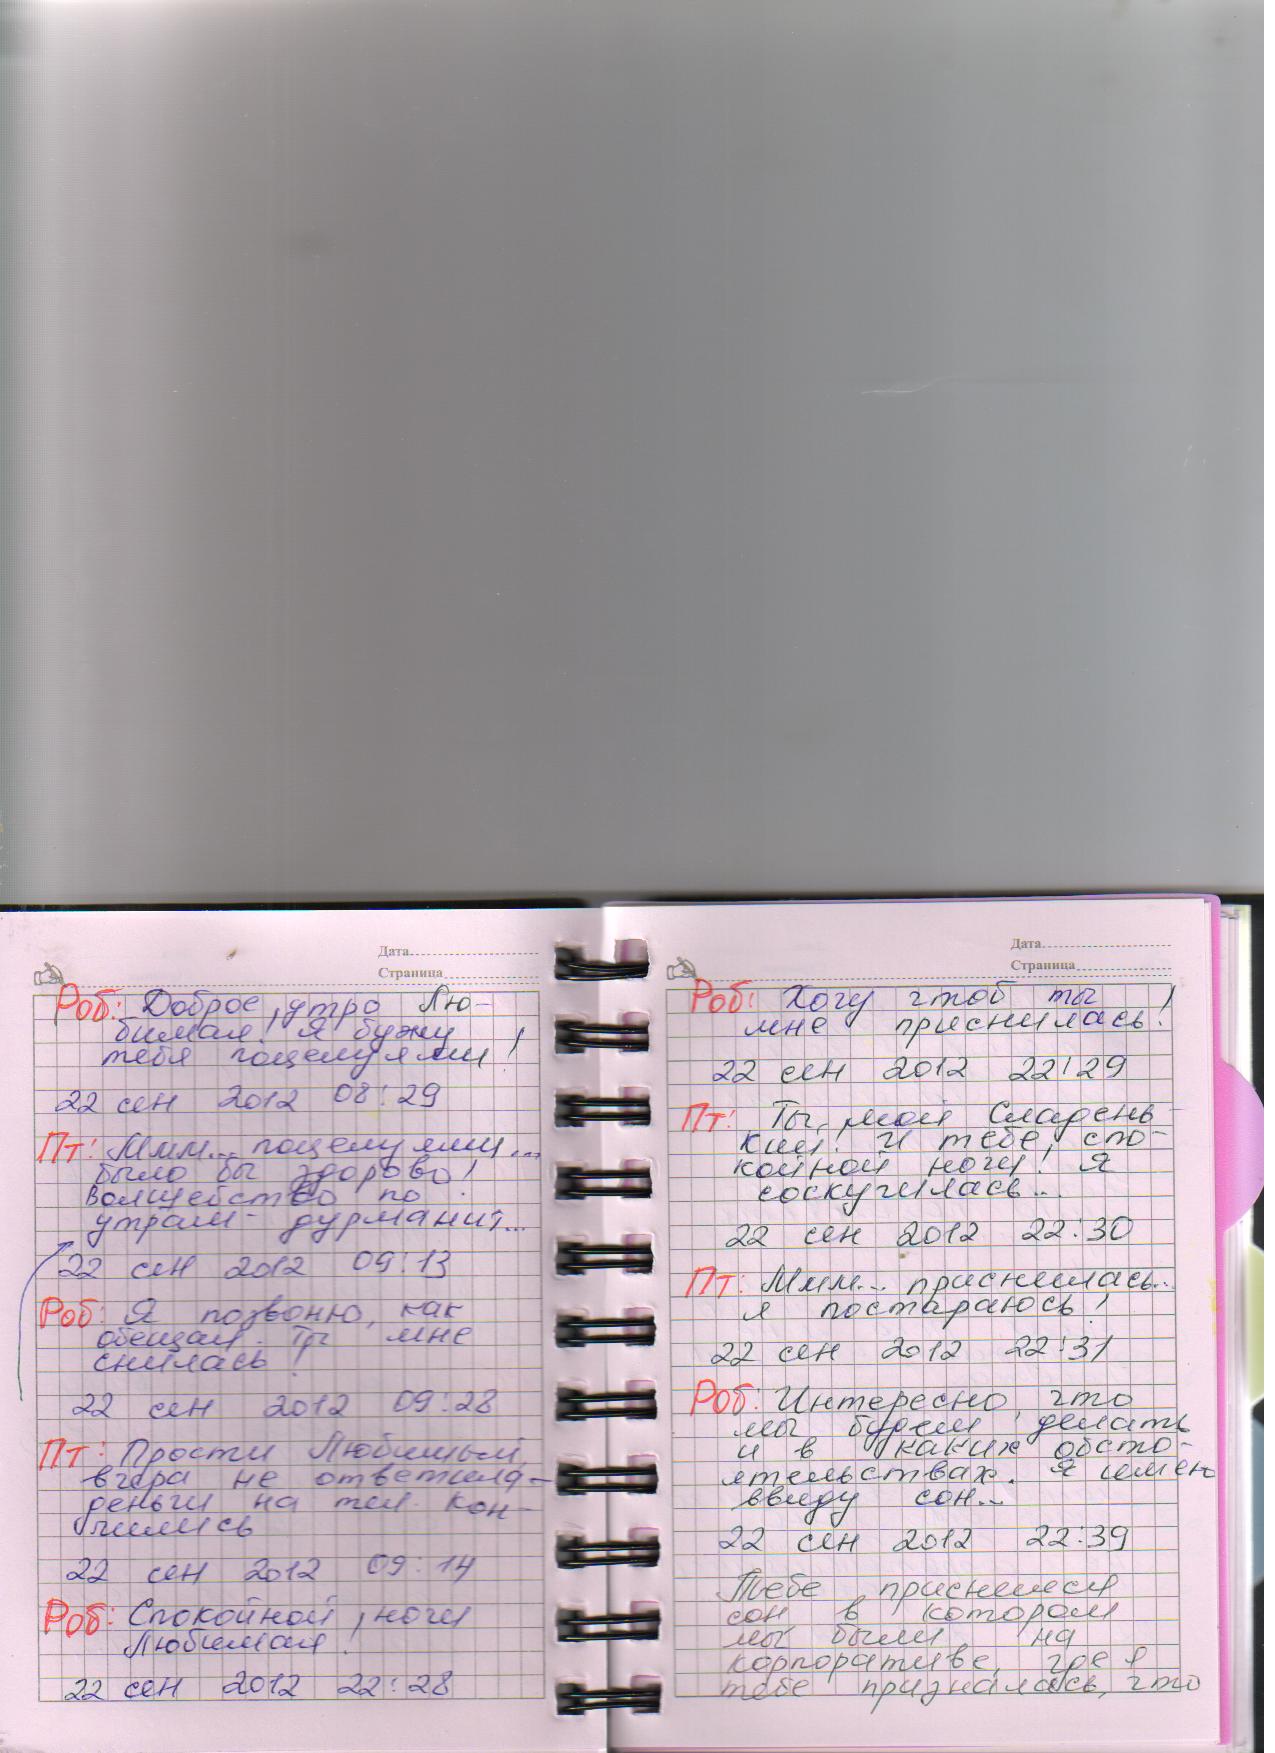 Дата
Страница
Роб: Доброе утро Лю-
бимая! Я бужу
тебя поцелуями!
22 сен 2012 08:29
Пт: Ммм... поцелуями...
было бы здорово!
Волшебство по
утрам - дурманит...
22 сен 2012 09:13
Роб: Я позвоню, как
обещал. Ты мне
снилась!
22 сен 2012 09:28
Пт: Прости Любимый,
вчера не ответила-
деньги на тел. кон-
чились
22 сен 2012 09:14
Роб: Спокойной ночи
Любимая!
22 сен 2012 22:28
Дата
Страница
Роб: Хочу чтоб ты
мне приснилась!
22 сен 2012 22:29
Пт: Ты, мой Сладень-
кий! И тебе, спо-
койной ночи! Я
соскучилась...
22 сен 2012 22:30
Пт: Ммм... приснилась...
я постараюсь!
22 сен 2012 22:31
Роб: Интересно, что
мы будем делать
и в каких обсто-
ятельствах. Я имею
ввиду сон...
22 сен 2012 22:39
Тебе приснился
сон в котором
мы были на
корпоративе, где я
тебе призналась, что